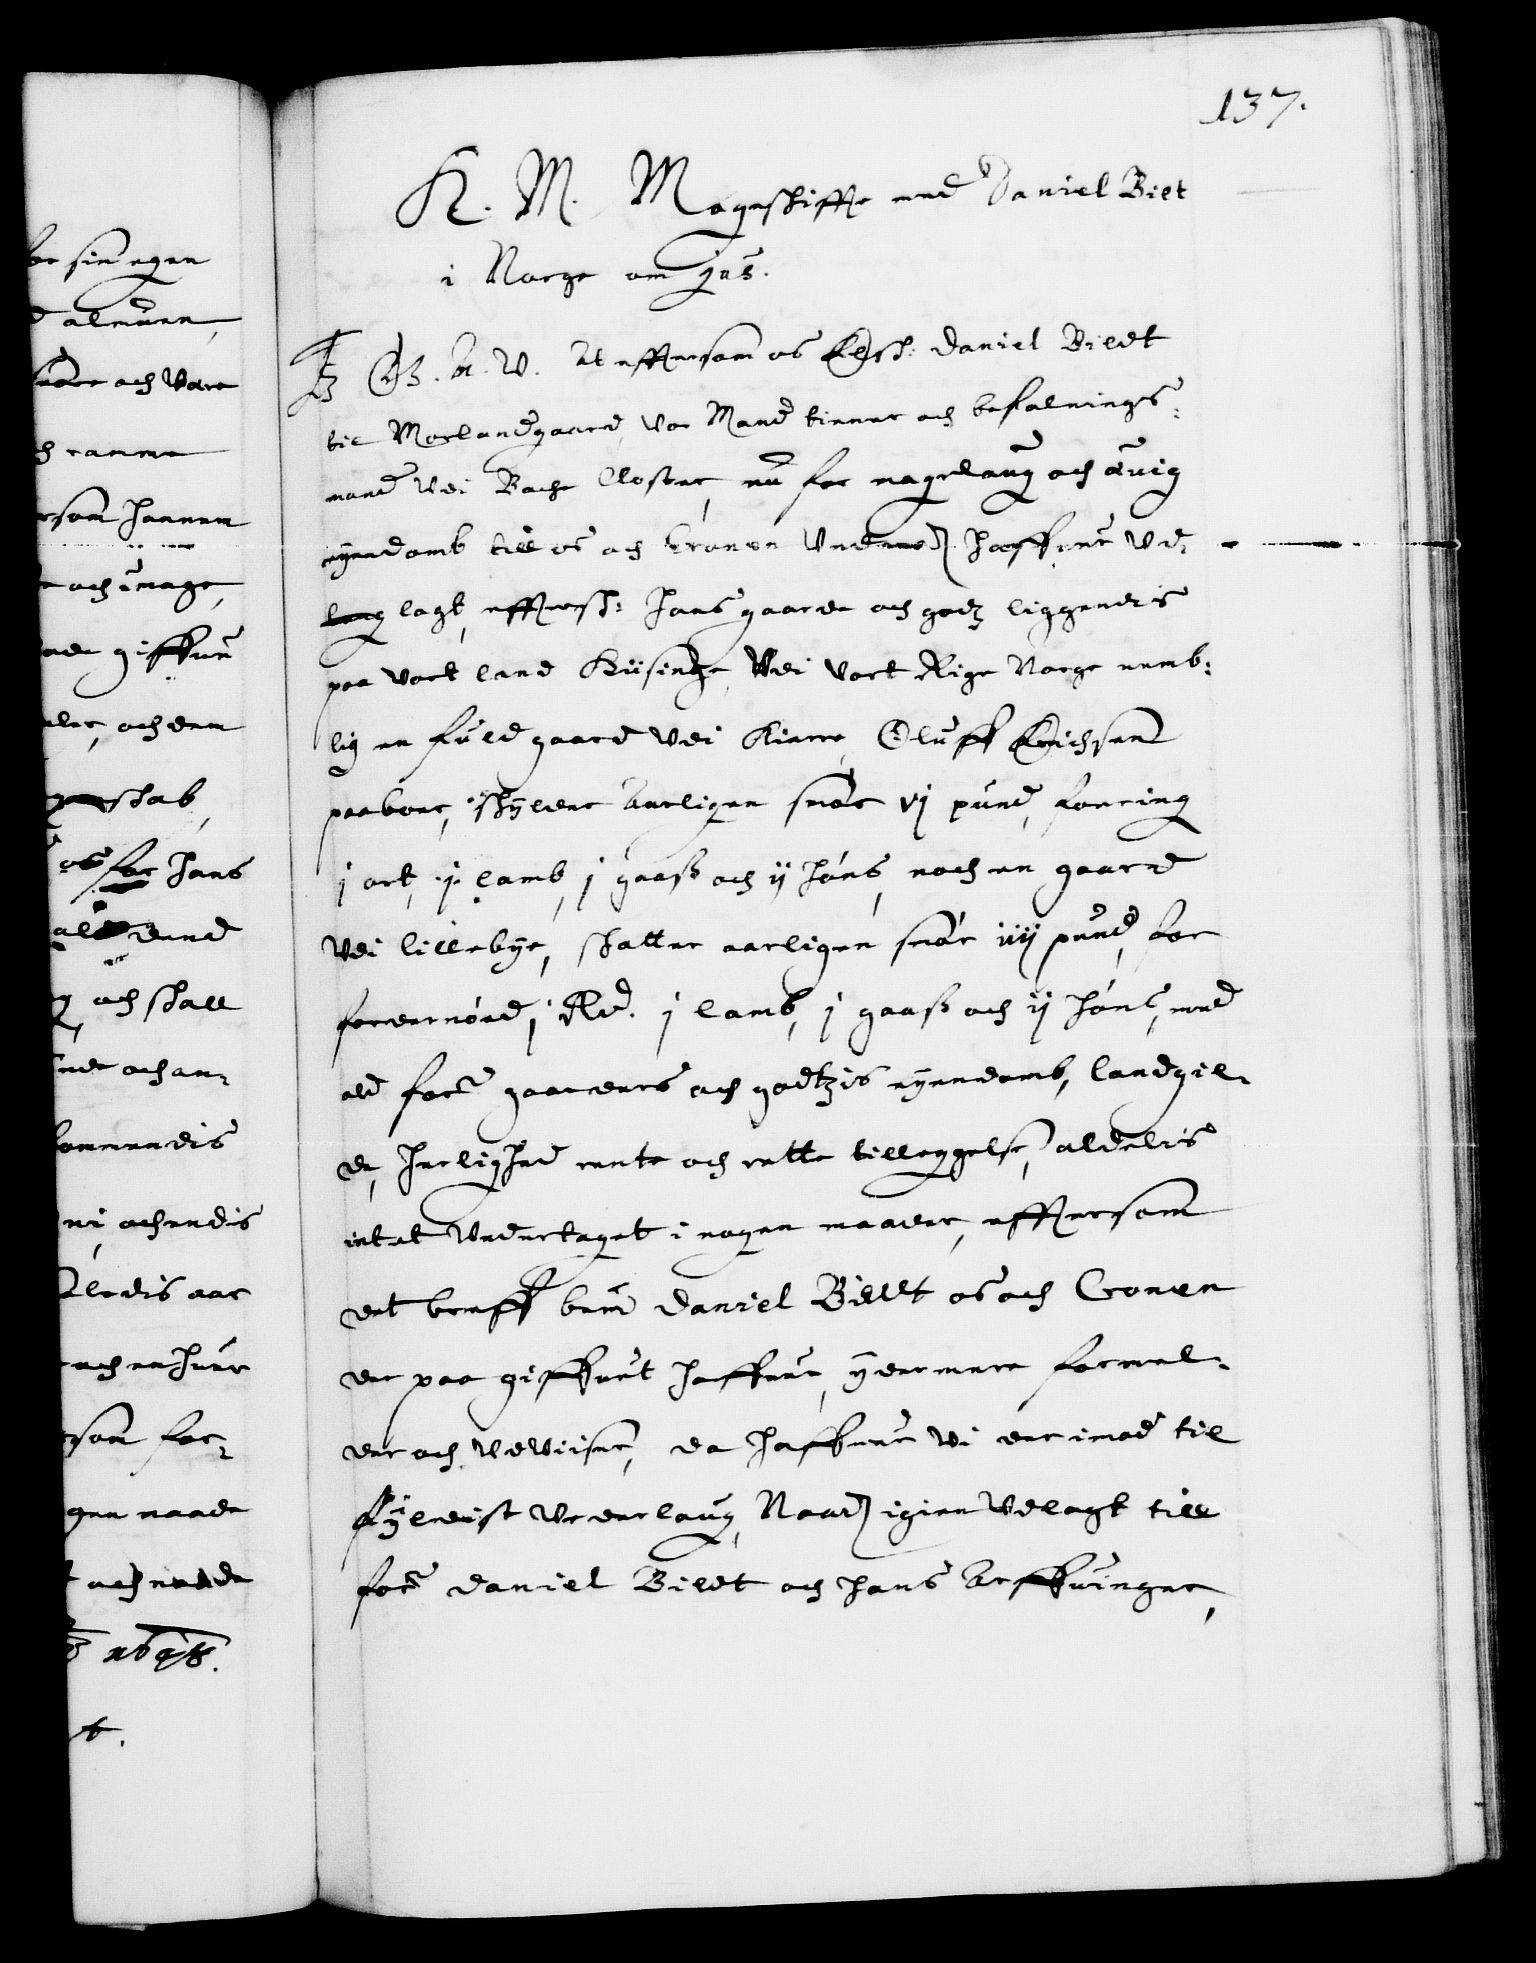 137.
K. M. Mageschiffte med Daniel Bilt
i Norge om gus.
C4. G. A. V. At effttersom os Elsch: Daniel Bildt
til Morlandgaard, vor Mand tienner och befalnings-
mand vdi Bache Closter, nu for magelaug och ævig
eyendomb till os och Cronen vnder haffuer vd-
lagt, effterschr: hans gaarde och godz liggendis
paa vort land Hiisinge, vdi vort Rige Norge nemb-
lig en fuld gaard vdi Kierre, Oluff Erichsen
paaboer, schylder aarligen smør vj pund, foering
j ort, j lamb, j gaass och ij høns, noch en gaard
vdi lillebye, skatter aarligen smør iiij pund, for
foedernød j Rd. j lamb, j gaass och ij høns, med
ald forne gaarders och godtzis eyendomb, landgil-
de, herlighed rente och rette tilleggelse, aldelis
intet vndertaget i nogen maader, efftersom
det breff bemte Daniel Billdt os och Cronen
der paa giffuet haffuer, ydermere formel-
der och vdviiser, da haffuer vi der imod til
fyldist vederlaug, Naad. igien vdlagt till
forne Daniel Bildt och hans Arffuinger,
for sin egen
almuen,
suare och være
som hannem
och umage,
giffuen
och dem
schab,
os for hans
och schall
och an-
kommendis
ni, och endis
aar
och enhuer
som for-
gen naade
och naade